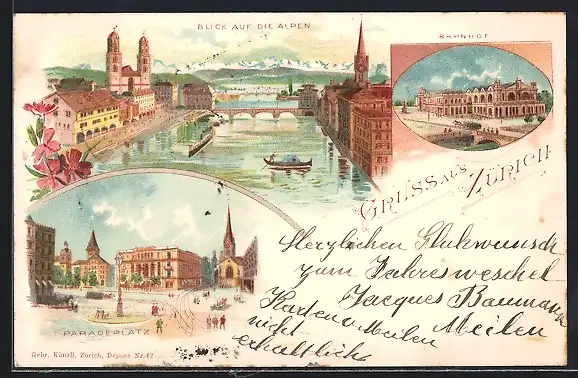 BLICK AUF DIE ALPEN
BAHNHOF
GRUSS AUS
ZÜRICH
PARADEPLATZ
Herzlichen Glukwunsch
zum Jahreswechsel
Jacques Baumann
Meilen
Karten v. Meilen
nicht
erhältlich
Gebr. Künzli, Zürich, Déposé Nr. 42